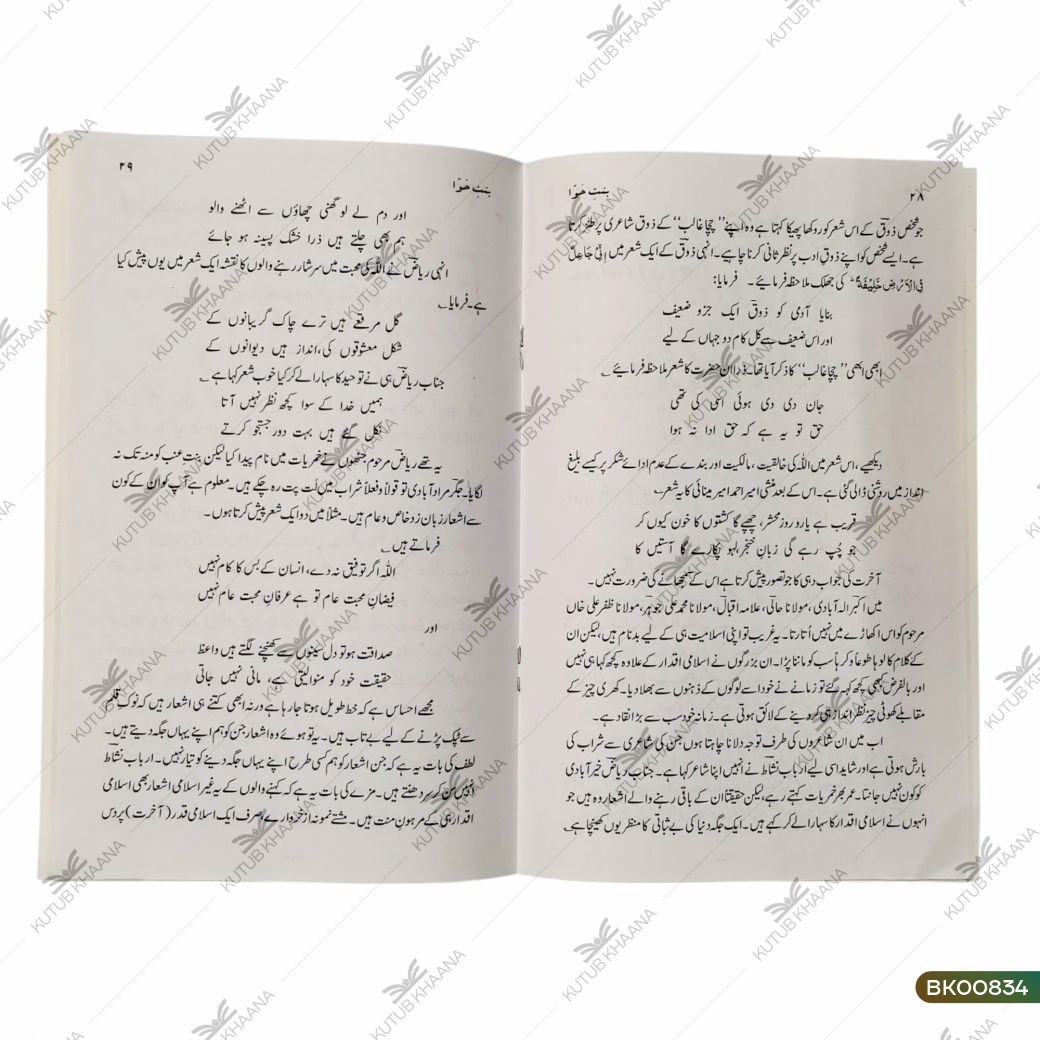 بنتِ حوّا
۲۸
جو شخص ذوقؔ کے اس شعر کو روکھا پھیکا کہتا ہے وہ اپنے ’’چچا غالب‘‘ کے ذوق شاعری پر طنز کرتا
ہے۔ ایسے شخص کو اپنے ذوقِ ادب پر نظر ثانی کرنا چاہیے۔ انہی ذوقؔ کے ایک شعر میں اِنِّیْ جَاعِلٌ
فِی الْاَرْضِ خَلِیْفَۃً کی جھلک ملاحظہ فرمائیے ۔ فرمایا:
بنایا آدمی کو ذوقؔ ایک جزو ضعیف
اور اس ضعیف سے کل کام دو جہاں کے لیے
ابھی ابھی ’’چچا غالب‘‘ کا ذکر آیا تھا۔ ذرا ان حضرت کا شعر ملاحظہ فرمائیے ؎
جان دی دی ہوئی اسی کی تھی
حق تو یہ ہے کہ حق ادا نہ ہوا
دیکھیے، اس شعر میں اللہ کی خالقیت، مالکیت اور بندے کے عدم ادائے شکر پر کیسے بلیغ
انداز میں روشنی ڈالی گئی ہے۔ اس کے بعد منشی امیر احمد امیر مینائی کا یہ شعر ؎
قریب ہے یارو روز محشر، چھپے گا کشتوں کا خون کیوں کر
جو چُپ رہے گی زبانِ خنجر، لہو پکارے گا آستیں کا
آخرت کی جواب دہی کا جو تصور پیش کرتا ہے اس کے سمجھانے کی ضرورت نہیں۔
میں اکبر الہ آبادی، مولانا حالیؔ، علامہ اقبالؔ، مولانا محمد علی جوہرؔ، مولانا ظفر علی خاں
مرحوم کو اس اکھاڑے میں نہیں اُتارتا۔ یہ غریب تو اپنی اسلامیت ہی کے لیے بدنام ہیں، لیکن ان
کے کلام کا لوہا طوعاً و کرہاً سب کو ماننا پڑا۔ ان بزرگوں نے اسلامی اقدار کے علاوہ کچھ کہا ہی نہیں
اور بالفرض کبھی کچھ کہہ گئے تو زمانے نے خود اسے لوگوں کے ذہنوں سے بھلا دیا۔ کھری چیز کے
مقابلے کھوٹی چیز نظر انداز ہی کر دینے کے لائق ہوتی ہے۔ زمانہ خود سب سے بڑا نقاد ہے۔
اب میں ان شاعروں کی طرف توجہ دلانا چاہتا ہوں جن کی شاعری سے شراب کی
بارش ہوتی ہے اور شاید اسی لیے ارباب نشاط نے انہیں اپنا شاعر کہا ہے۔ جناب ریاضؔ خیر آبادی
کو کون نہیں جانتا۔ عمر بھر خمریات کہتے رہے، لیکن حقیقتاً ان کے باقی رہنے والے اشعار وہ ہیں جو
انہوں نے اسلامی اقدار کا سہارا لے کر کہے ہیں۔ ایک جگہ دنیا کی بے ثباتی کا منظر یوں کھینچا ہے۔
۲۹
بنتِ حوّا
اور دم لے لو گھنی چھاؤں سے اٹھنے والو
ہم بھی چلتے ہیں ذرا خشک پسینہ ہو جائے
انہی ریاضؔ نے اللہ کی محبت میں سرشار رہنے والوں کا نقشہ ایک شعر میں یوں پیش کیا
ہے۔ فرمایا ؎
گل مرقعے ہیں ترے چاک گریبانوں کے
شکل معشوقوں کی، انداز ہیں دیوانوں کے
جناب ریاضؔ ہی نے توحید کا سہارا لے کر کیا خوب شعر کہا ہے ؎
ہمیں خدا کے سوا کچھ نظر نہیں آتا
نکل گئے ہیں بہت دور جستجو کرتے
یہ تھے ریاضؔ مرحوم جنھوں نے خمریات میں نام پیدا کیا لیکن بنتِ عنب کو منہ تک نہ
لگایا۔ جگرؔ مراد آبادی تو قولاً و فعلاً شراب میں لَت پت رہ چکے ہیں۔ معلوم ہے آپ کو ان کے کون
سے اشعار زبان زد خاص و عام ہیں۔ مثلاً میں دو ایک شعر پیش کرتا ہوں۔
فرماتے ہیں ؎
اللہ اگر توفیق نہ دے، انسان کے بس کا کام نہیں
فیضانِ محبت عام تو ہے عرفانِ محبت عام نہیں
اور
صداقت ہو تو دل سینوں سے کھنچنے لگتے ہیں واعظ
حقیقت خود کو منوا لیتی ہے، مانی نہیں جاتی
مجھے احساس ہے کہ خط طویل ہوتا جا رہا ہے ورنہ ابھی کتنے ہی اشعار ہیں کہ نوکِ قلم
سے ٹپک پڑنے کے لیے بے تاب ہیں۔ یہ تو ہوئے وہ اشعار جن کو ہم اپنے یہاں جگہ دیتے ہیں۔
لطف کی بات یہ ہے کہ جن اشعار کو ہم کسی طرح اپنے یہاں جگہ دینے کو تیار نہیں۔ ارباب نشاط
انہیں سن کر سر دھنتے ہیں۔ مزے کی بات یہ ہے کہ کہنے والوں کے یہ غیر اسلامی اشعار بھی اسلامی
اقدار ہی کے مرہونِ منت ہیں۔ مشتے نمونہ از خروارے صرف ایک اسلامی قدر (آخرت) پر دس
BK00834
KUTUB KHAANA